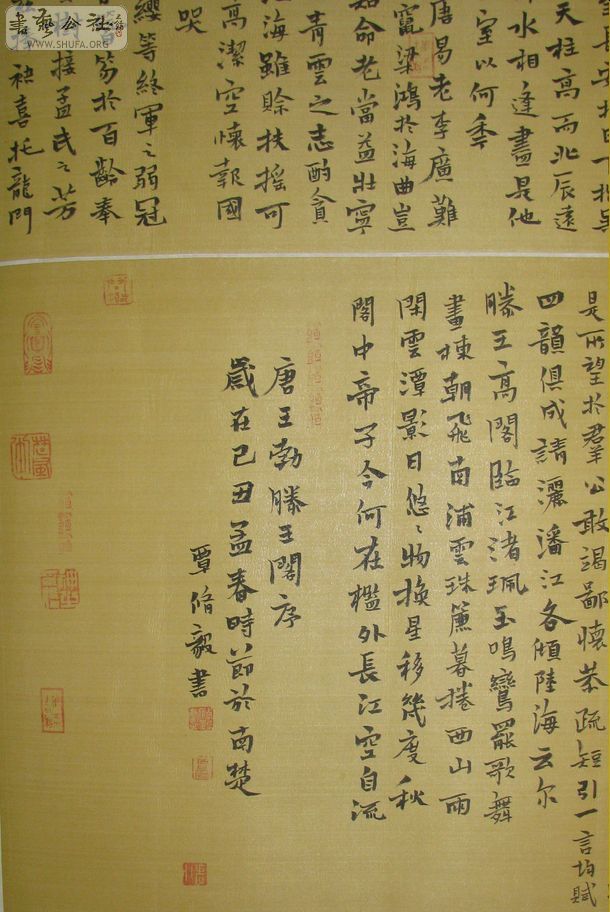 書藝公社
WWW.SHUFA.ORG
長安於日下指吳
天柱高而北辰遠
水相逢盡是他
室以何年
唐易老李廣難
竄梁鴻於海曲豈
知命老當益壯寧
青雲之志酌貪
海雖賒扶搖可
高潔空懷報國
哭
纓等終軍之弱冠
笏於百齡奉
樹接孟氏之芳
袂喜托龍門
是所望於群公敢竭鄙懷恭疏短引一言均賦
四韻俱成請灑潘江各傾陸海云尔
滕王高閣臨江渚珮玉鳴鸞罷歌舞
畫棟朝飛南浦雲珠簾暮捲西山雨
閑雲潭影日悠〻物換星移幾度秋
閣中帝子今何在檻外長江空自流
唐王勃滕王閣序
歲在己丑孟春時節於南楚
覃脩毅書